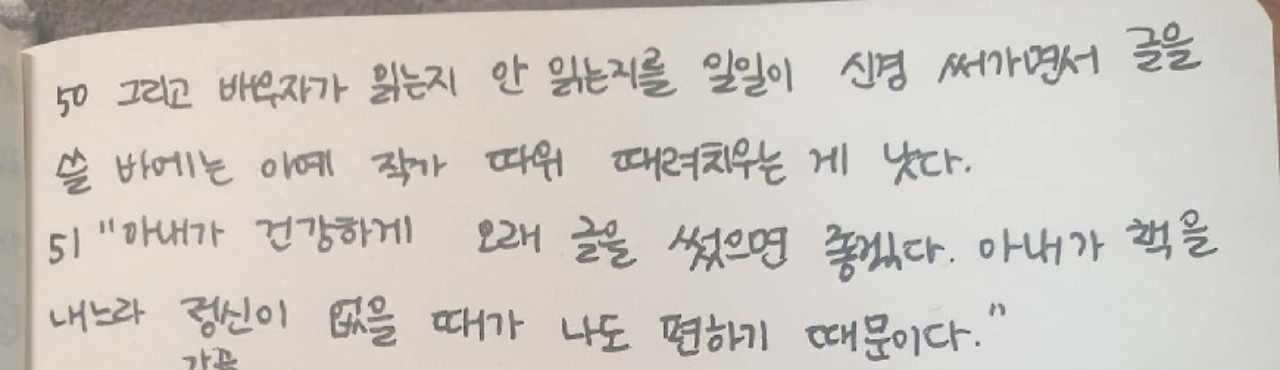 50 그리고 배우자가 읽는지 안 읽는지를 일일이 신경 써가면서 글을
쓸 바에는 아예 작가 따위 때려치우는 게 낫다.
51 "아내가 건강하게 오래 글을 썼으면 좋겠다. 아내가 책을
내느라 정신이 없을 때가 나도 편하기 때문이다."